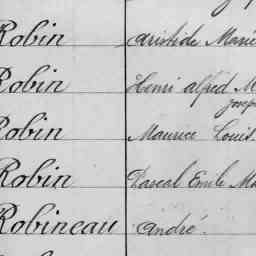 Robin Aristide Marie
Robin Henri Alfred M
Joseph
Robin Maurice Louis
Robin Pascal Emile Ma
Robineau André.